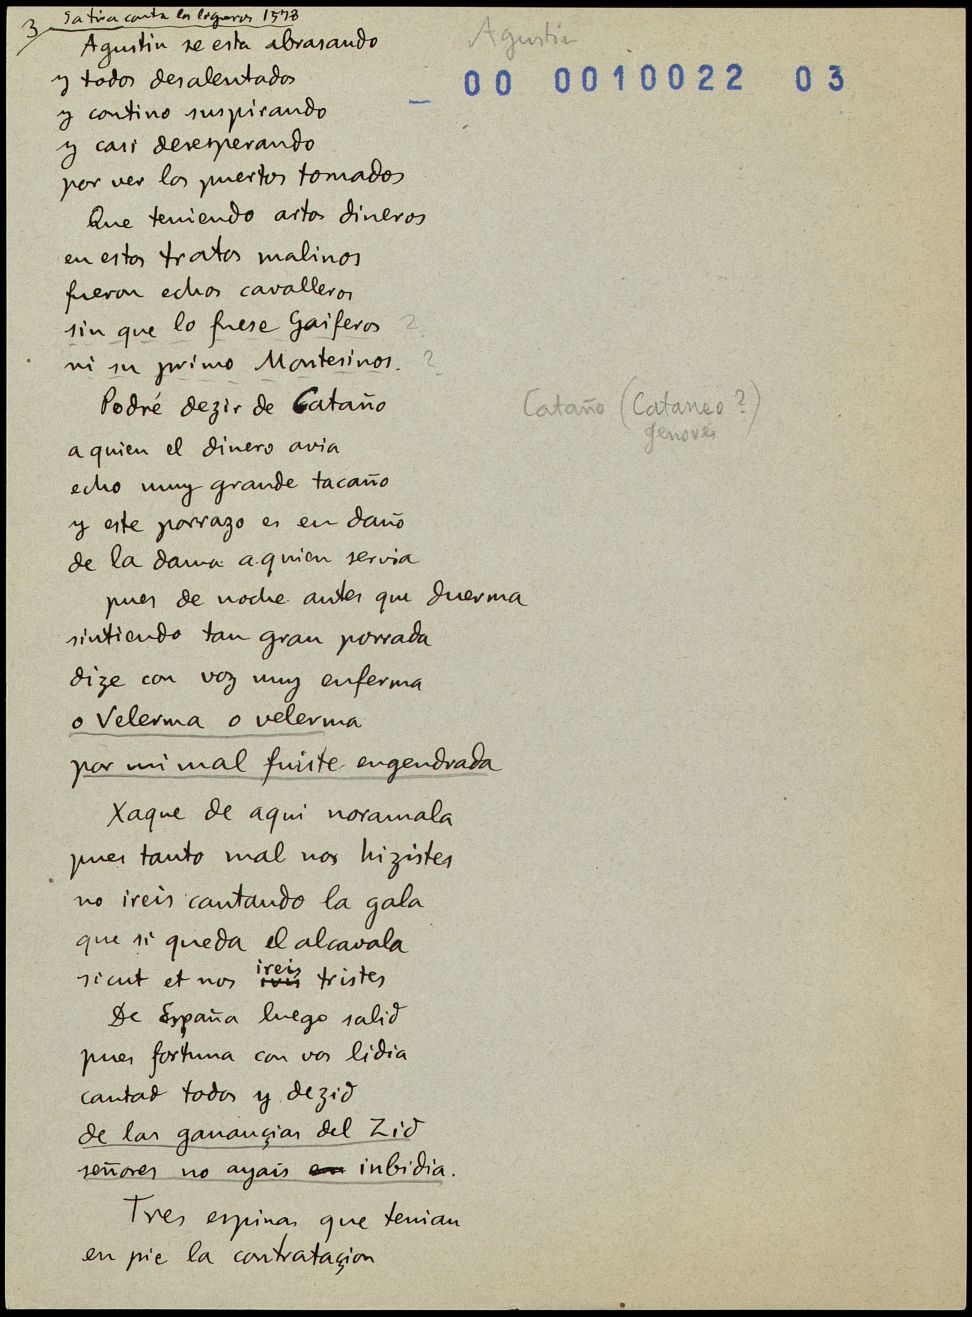 3 Satira contra los logreros 1578
Agustin se esta abrasando
Agustin
00 0010022 03
y todos desalentados
y contino suspirando
y casi desesperando
por ver los puertos tomados
Que teniendo artos dineros
en estos tratos malinos
fueron echos cavalleros
sin que lo fuese Gaiferos ?
ni su primo Montesinos. ?
Podré dezir de Cataño
Cataño (Cataneo ?)
genovés
a quien el dinero avia
echo muy grande tacaño
y este porrazo es en daño
de la dama a quien servia
pues de noche antes que duerma
sintiendo tan gran porrada
dize con voz muy enferma
o Velerma o velerma
por mi mal fuiste engendrada
Xaque de aqui noramala
pues tanto mal nos hizistes
no ireis cantando la gala
que si queda el alcavala
sicut et nos ireis tristes
De España luego salid
pues fortuna con vos lidia
cantad todos y dezid
de las ganançias del Zid
señores no ayais en inbidia.
Tres espinas que tenian
en pie la contrataçion